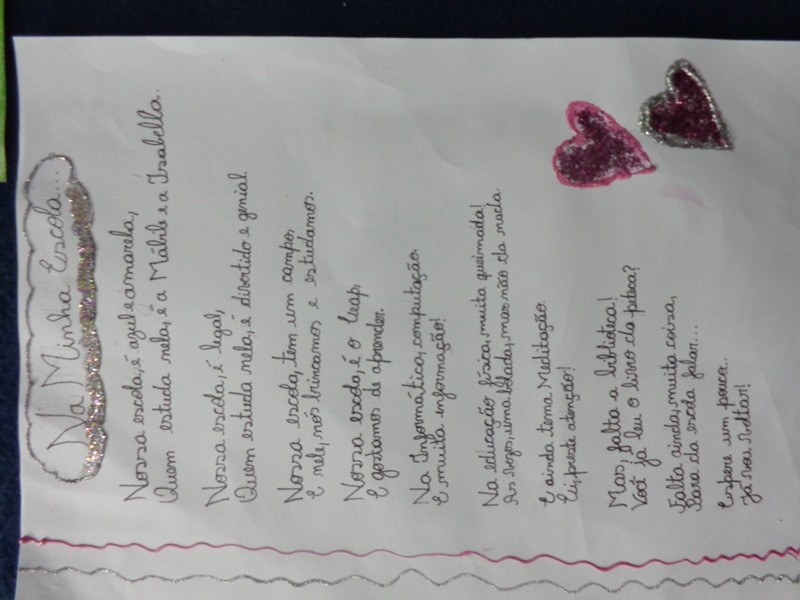 Na Minha Escola...
Nossa escola, é azul e amarela,
Quem estuda nela, é a Mábile e a Isabella.
Nossa escola, é legal,
Quem estuda nela, é divertido e genial
Nossa escola, tem um campo,
E nele, nós brincamos e estudamos.
Nossa escola, é o Leap,
E gostamos de aprender.
Na Informática, computação.
E muita informação!
Na educação física, muita queimada!
As vezes, uma bolada, mas não da nada.
E ainda tem a Meditação.
Ei, preste atenção!
Mas, falta a biblioteca!
Você ja leu o livro da peteca?
Falta ainda, muita coisa,
Para da escola falar...
Espere um pouco...
Já vou voltar!